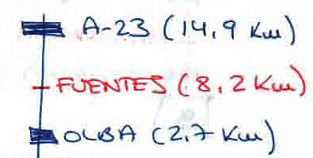 A-23 (14,9 Km)
FUENTES (8,2 Km)
OLBA (2,7 Km)